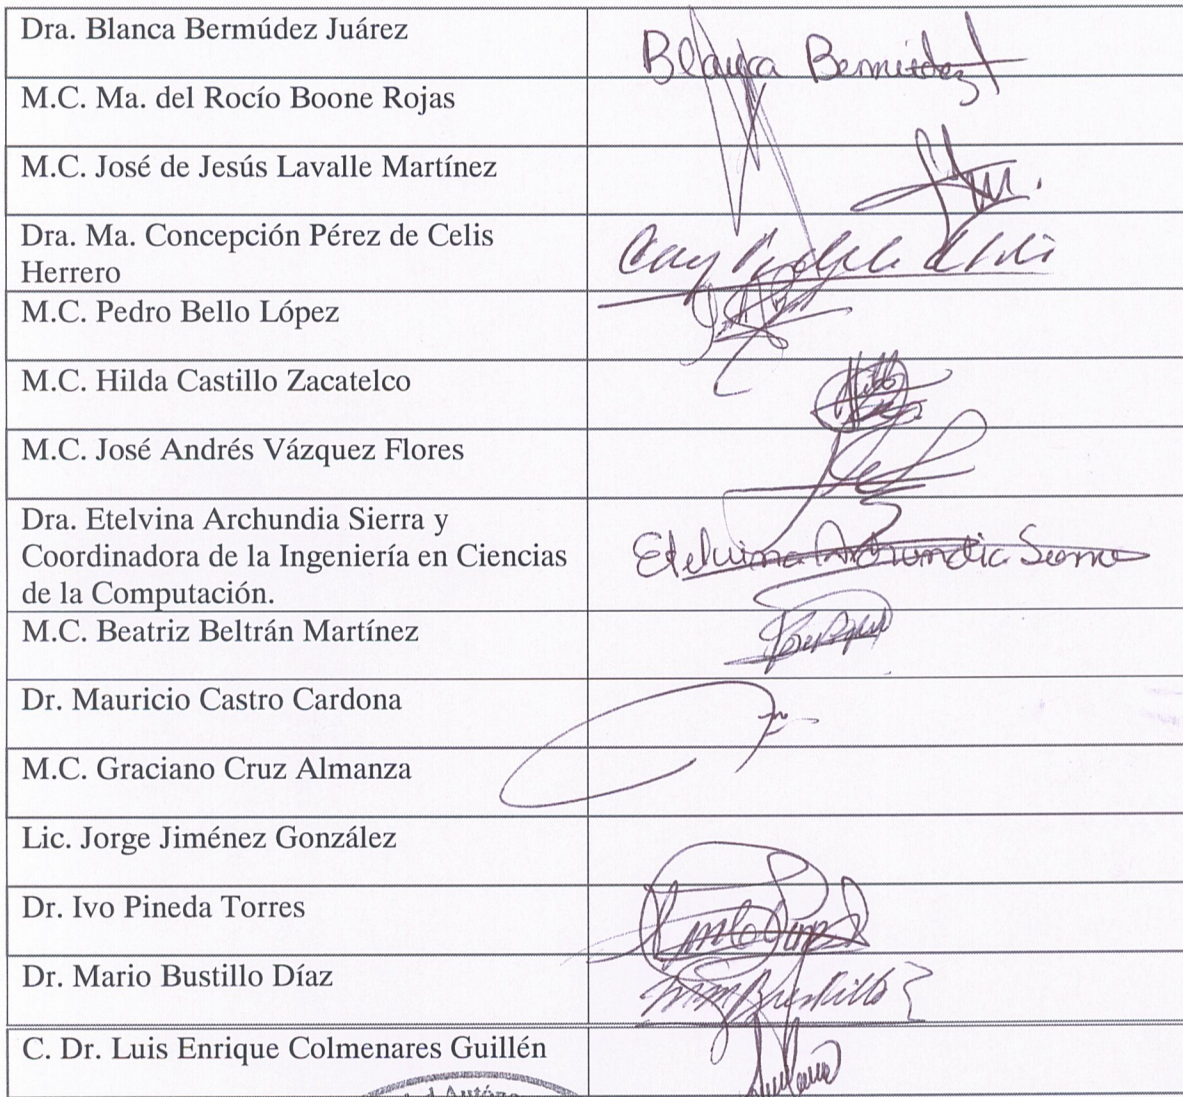 Dra. Blanca Bermúdez Juárez
Blanca Bermúdez
M.C. Ma. del Rocío Boone Rojas
M.C. José de Jesús Lavalle Martínez
Dra. Ma. Concepción Pérez de Celis
Herrero
M.C. Pedro Bello López
M.C. Hilda Castillo Zacatelco
M.C. José Andrés Vázquez Flores
Dra. Etelvina Archundia Sierra y
Coordinadora de la Ingeniería en Ciencias
de la Computación.
Etelvina Archundia Sierra
M.C. Beatriz Beltrán Martínez
Dr. Mauricio Castro Cardona
M.C. Graciano Cruz Almanza
Lic. Jorge Jiménez González
Dr. Ivo Pineda Torres
Dr. Mario Bustillo Díaz
Bustillo
C. Dr. Luis Enrique Colmenares Guillén